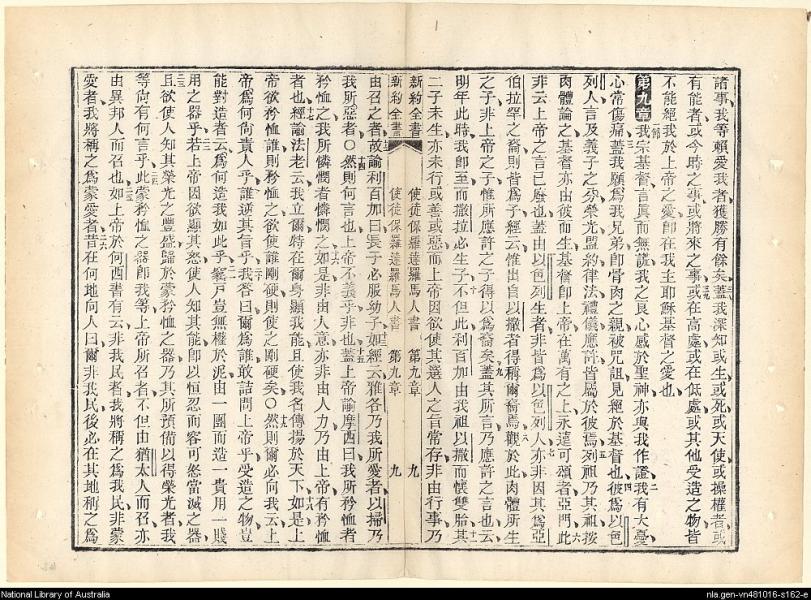 諸事我等賴愛我者獲勝有餘矣蓋我深知或生或死或天使或操權者或
有能者或今時之事或將來之事或在高處或在低處或其他受造之物皆
不能絕我於上帝之愛卽在我主耶穌基督之愛也
第九章我宗基督言眞而無謊我之良心感於聖神亦與我作證我有大憂
心常傷痛蓋我願爲我兄弟卽骨肉之親被咒詛見絕於基督也彼爲以色
列人言及義子之分榮光盟約律法禮儀應許皆屬於彼焉列祖乃其祖按
肉體論之基督亦由彼而生基督卽上帝在萬有之上永遠可頌者亞門此
非云上帝之言已廢也蓋由以色列生者非皆爲以色列人亦非因其爲亞
伯拉罕之裔則皆爲子經云惟出自以撒者得稱爾裔焉觀於此肉體所生
之子非上帝之子惟所應許之子得以爲裔矣蓋其所言乃應許之言也云
明年此時我卽至而撒拉必生子不但此利百加由我祖以撒而懷雙胎其
二子未生亦未行或善或惡而上帝因欲使其選人之旨常存非由行事乃
新約全書 使徒保羅達羅馬人書 第九章 九
新約全書 使徒保羅達羅馬人書 第九章 九
由召之者故諭利百加曰長子必服幼子如經云雅各乃我所愛者以掃乃
我所惡者○然則何言也上帝不義乎非也蓋上帝諭摩西曰我所矜恤者
矜恤之我所憐憫者憐憫之如是非由人意亦非由人力乃由上帝有矜恤
者也經諭法老云我立爾特在爾身顯我能且使我名傳揚於天下如是上
帝欲矜恤誰則矜恤之欲使誰剛硬則使之剛硬矣○然則爾必向我云上
帝爲何尚責人乎誰逆其旨乎我答曰爾爲誰敢詰問上帝乎受造之物豈
能對造者云爲何造我如此乎窰戶豈無權於泥由一團而造一貴用一賤
用之器乎若上帝因欲顯其怒使人知其能卽以恒忍而容可怒當滅之器
且欲使人知其榮光之豐盛歸於蒙矜恤之器乃其所預備以得榮光者我
等尚有何言乎此蒙矜恤之器卽我等上帝所召者不但由猶太人而召亦
由異邦人而召也如上帝於何西書有云非我民者我將稱之爲我民非蒙
愛者我將稱之爲蒙愛者昔在何地向人曰爾非我民後必在其地稱之爲
National Library of Australia
nla.gen-vn481016-s162-e